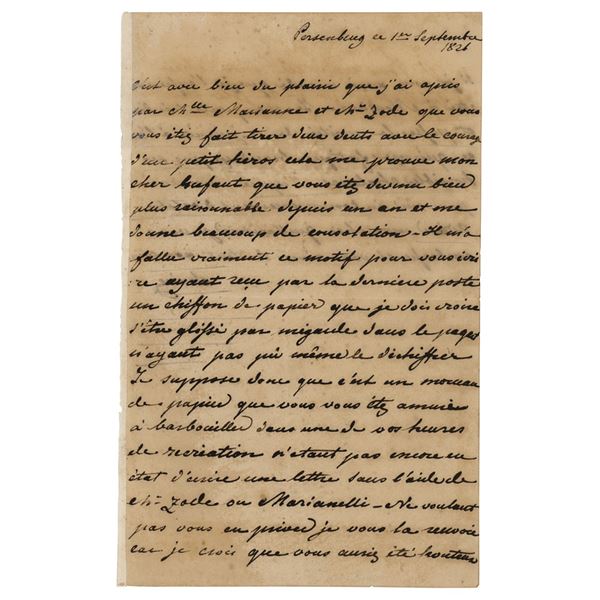 Persenbeug ce 1er Septembre
1826
C'est avec bien du plaisir que j'ai apris
par Mlle Marianne et Mr Zode que vous
vous étez fait tirer deux dents avec le courage
d'un petit héros cela me prouve mon
cher Enfant que vous étez devenu bien
plus raisonnable depuis un an et me
donne beaucoup de consolation - Il m'a
fallu vraiment ce motif pour vous écri
re ayant reçu par la dernière poste
un chiffon de papier que je dois croire
s'être glissé par mégarde dans le paquet
n'ayant pas pu même le déchiffrer
Je suppose donc que c'est un morceau
de papier que vous vous étez amusé
à barbouiller dans une de vos heures
de recréation n'étant pas encore en
état d'écrire une lettre sans l'aide de
Mr Zode ou Marianelli - Ne voulant
pas vous en priver je vous la renvoie
car je crois que vous auriez été honteux